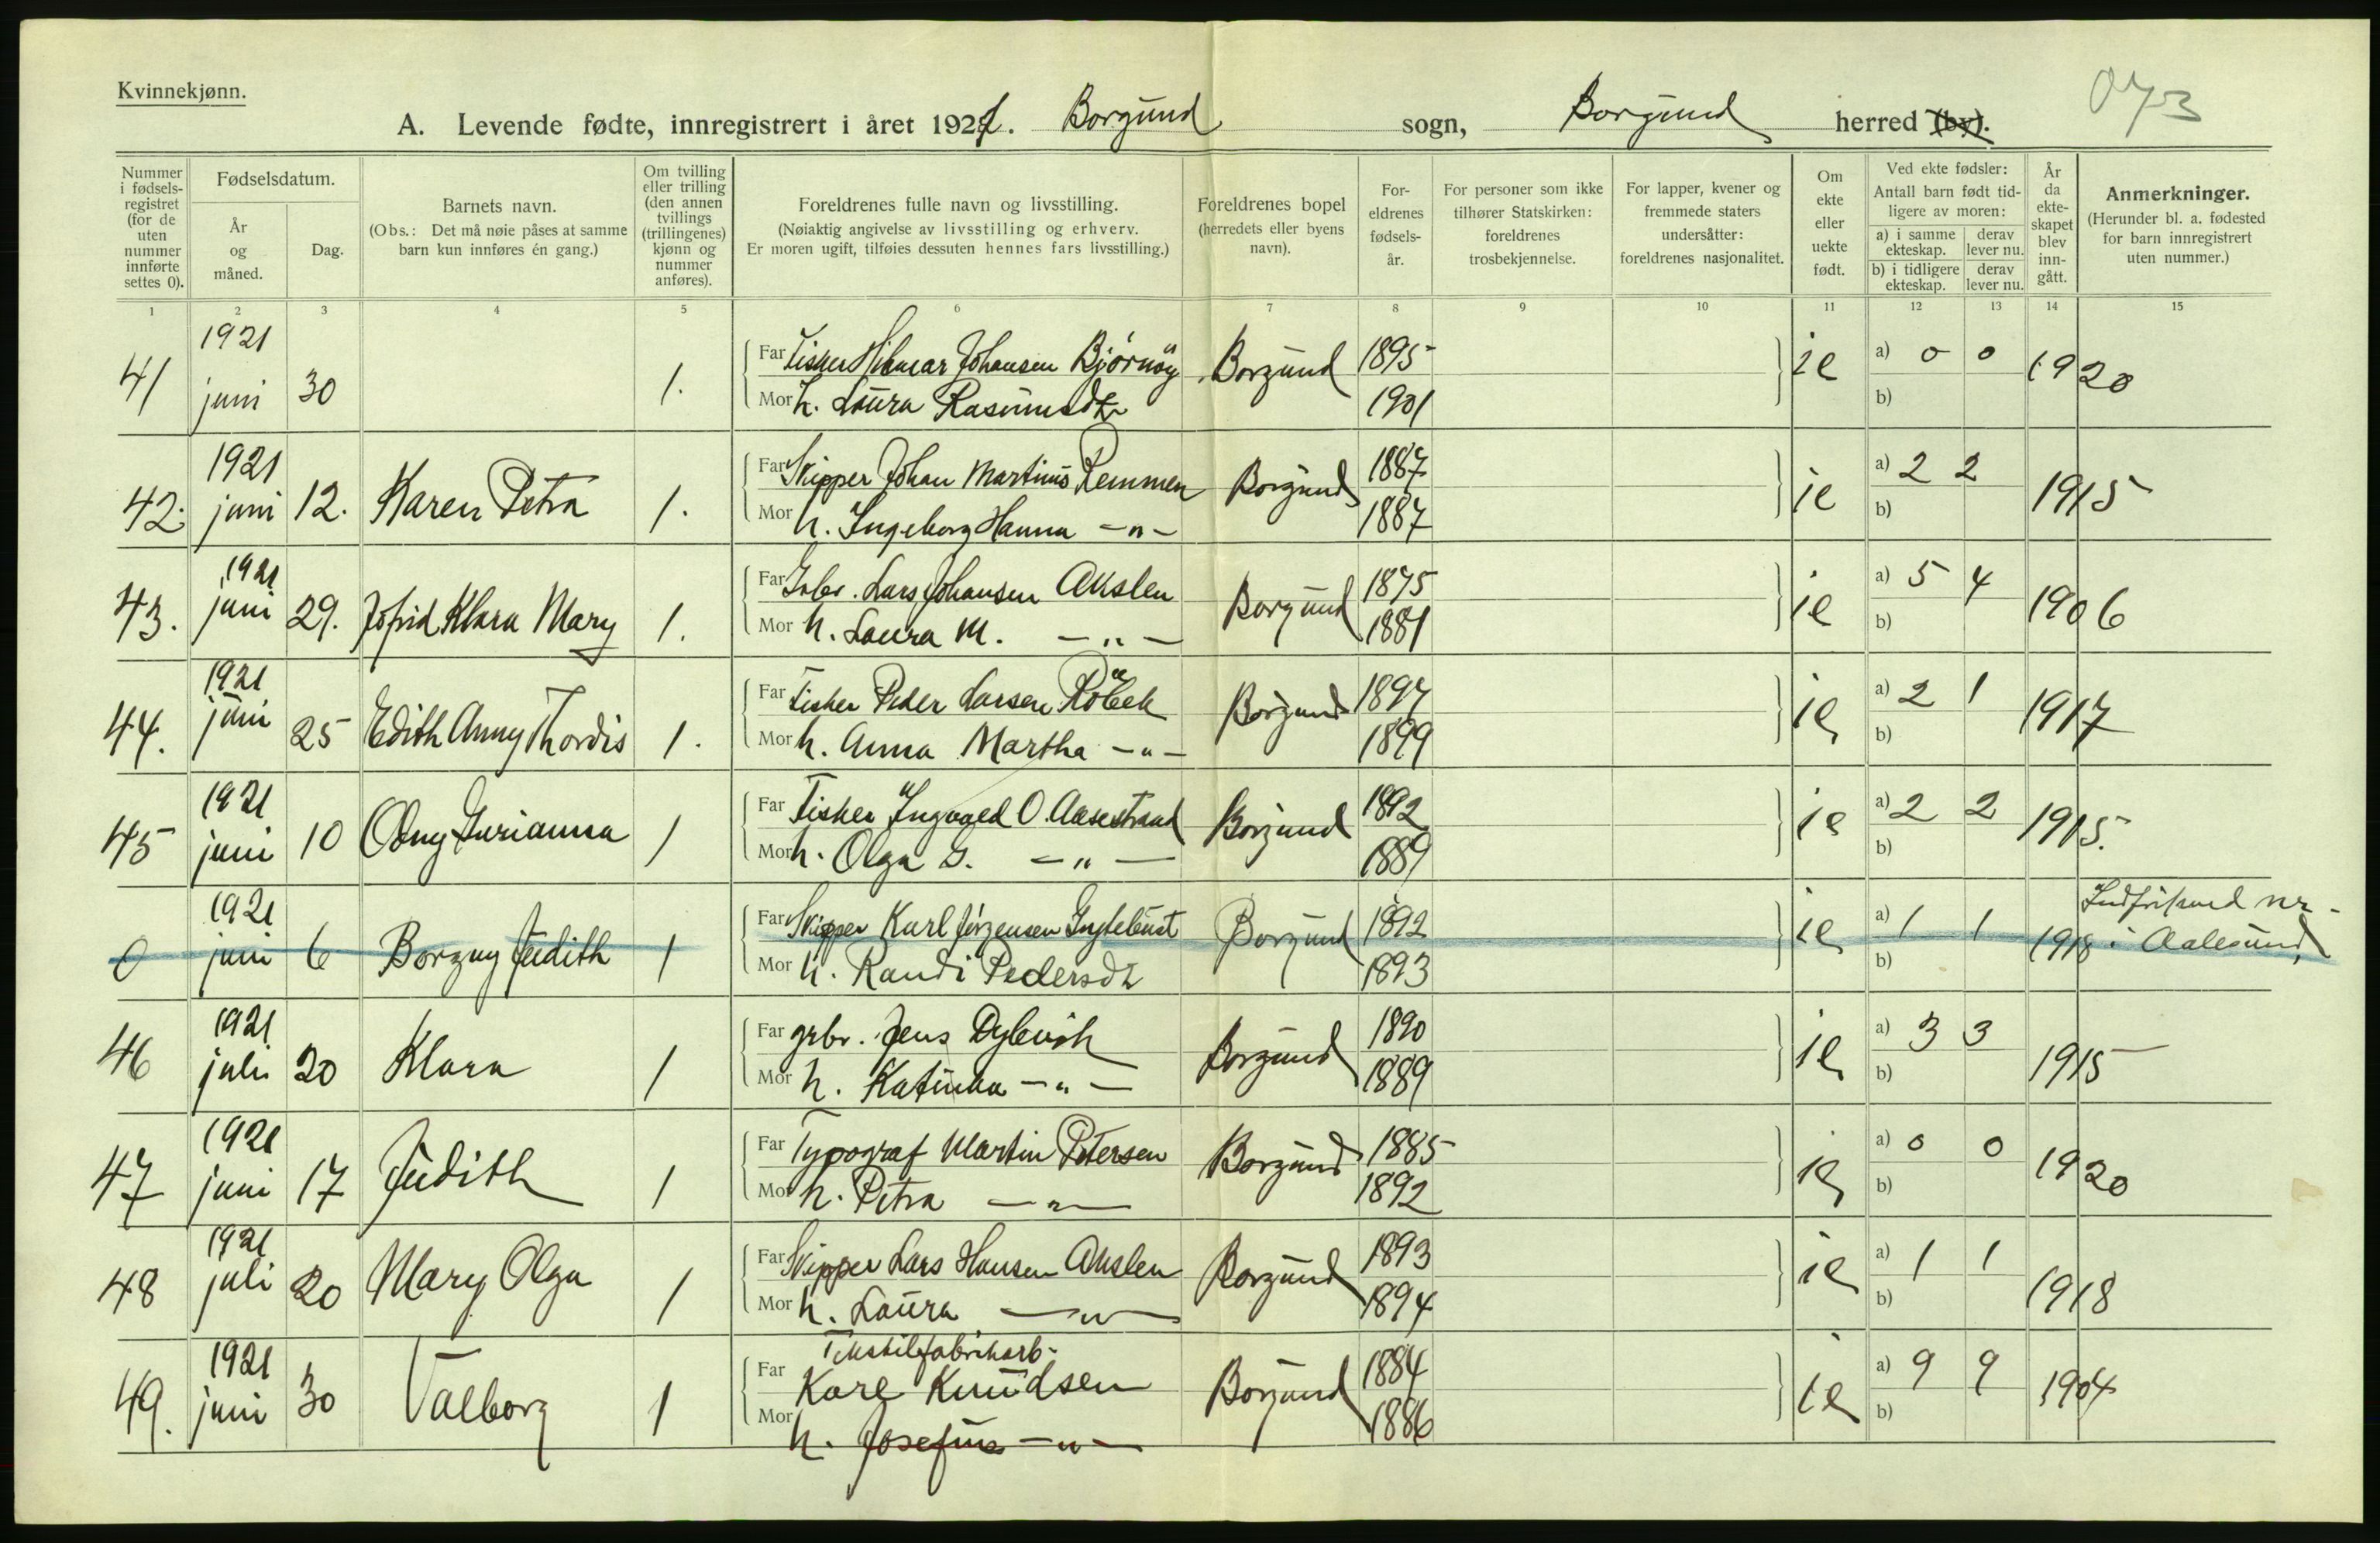 Kvinnekjønn.
073
A. Levende fødte, innregistrert i året 1921. Borgund sogn, Borgund herred (by).
Nummer i fødselsregistret (for de uten nummer innførte settes 0).
Fødselsdatum.
År og måned.
Dag.
Barnets navn.
(Obs.: Det må nøie påses at samme barn kun innføres én gang.)
Om tvilling eller trilling (den annen tvillings (trillingenes) kjønn og nummer anføres).
Foreldrenes fulle navn og livsstilling.
(Nøiaktig angivelse av livsstilling og erhverv.
Er moren ugift, tilføies dessuten hennes fars livsstilling.)
Foreldrenes bopel (herredets eller byens navn).
Foreldrenes fødselsår.
For personer som ikke tilhører Statskirken: foreldrenes trosbekjennelse.
For lapper, kvener og fremmede staters undersåtter: foreldrenes nasjonalitet.
Om ekte eller uekte født.
Ved ekte fødsler:
Antall barn født tidligere av moren:
a) i samme ekteskap. derav lever nu.
b) i tidligere ekteskap. derav lever nu.
År da ekteskapet blev inngått.
Anmerkninger.
(Herunder bl. a. fødested for barn innregistrert uten nummer.)
1 2 3 4 5 6 7 8 9 10 11 12 13 14 15
41 1921 juni 30 1. Far Fisker Hilmar Johansen Bjørnøy Borgund 1895 ie a) 0 0 1920
Mor h. Laura Rasmusdtr 1901 b)
42. 1921 juni 12. Karen Petra 1. Far Skipper Johan Martinus Remmen Borgund 1887 ie a) 2 2 1915
Mor h. Ingeborg Hanna -"- 1887 b)
43. 1921 juni 29. Jofrid Klara Mary 1. Far Grbr. Lars Johansen Akslen Borgund 1875 ie a) 5 4 1906
Mor h. Laura M. -"- 1881 b)
44. 1921 juni 25 Edith Anny Thordis 1. Far Fisker Peder Larsen Röbek Borgund 1897 ie a) 2 1 1917
Mor h. Anna Martha -"- 1899 b)
45 1921 juni 10 Odny Gurianna 1 Far Fisker Ingvald O. Aasestrand Borgund 1892 ie a) 2 2 1915.
Mor h. Olga G. -"- 1889 b)
0 1921 juni 6 Borgny Judith 1 Far Skipper Karl Jörgensen Borgund 1892 ie a) 1 1 1918 nr i Aalesund.
Mor h. Randi Pedersdtr 1893 b)
46 1921 juli 20 Klara 1 Far grbr. Jens Borgund 1890 ie a) 3 3 1915
Mor h. Katinka -"- 1889 b)
47 1921 juni 17 Judith 1 Far Typograf Martin Petersen Borgund 1885 ie a) 0 0 1920
Mor h. Petra -"- 1892 b)
48 1921 juli 20 Mary Olga 1 Far Skipper Lars Hansen Akslen Borgund 1893 ie a) 1 1 1918
Mor h. Laura -"- 1894 b)
Tekstilfabrikarb.
49. 1921 juni 30 Valborg 1 Far Karl Knudsen Borgund 1884 ie a) 9 9 1904
Mor h. Josefine -"- 1886 b)